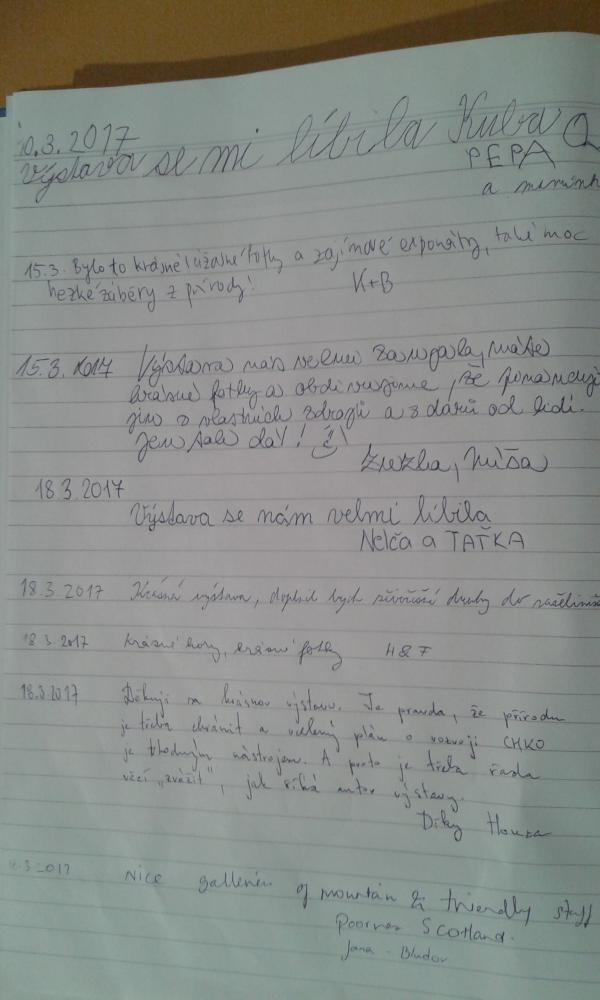 10.3.2017
Výstava se mi líbila Kuba
PEPA
a
15.3. Bylo to krásné! úžasné fotky a zajímavé exponáty, také moc
hezké záběry z přírody!
K+B
15.3. 2017 Výstava nás velmi zaujala, máte
krásné fotky a obdivujeme, že
jím z vlastních zdrojů a z darů od lidí.
Jen tak dál!
Zuzka, Míša
18.3.2017
Výstava se nám velmi líbila
Nelča a TAŤKA
18.3.2017 Krásná výstava, doplnil bych druhy do
18.3.2017 Krásné hory, krásné fotky H&F
18.3.2017 Děkuji za krásnou výstavu. Je pravda, že přírodu
je třeba chránit a plán o rozvoji CHKO
je vhodným nástrojem. A proto je třeba řada
věcí „zvážit", jak říká autor výstavy.
Díky Honza
.3.2017 Nice galleries of mountain & friendly staff
Scotland.
Jana - Bludov